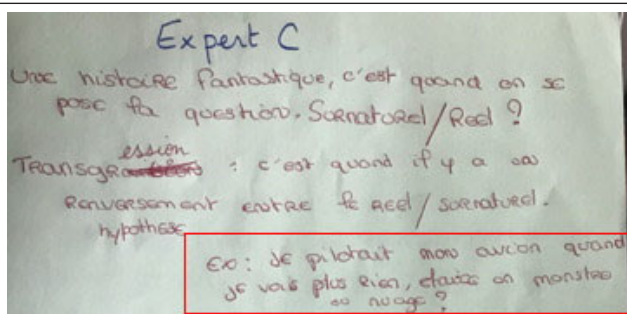 Expert C
Une histoire fantastique, c'est quand on se
pose la question. Surnaturel/Réel ?
ession
Transgr : c'est quand il y a un
Renversement entre le réel/surnaturel.
hypothèse
Ex : Je pilotait mon avion quand
je vois plus rien, était un monstre
ou nuage ?